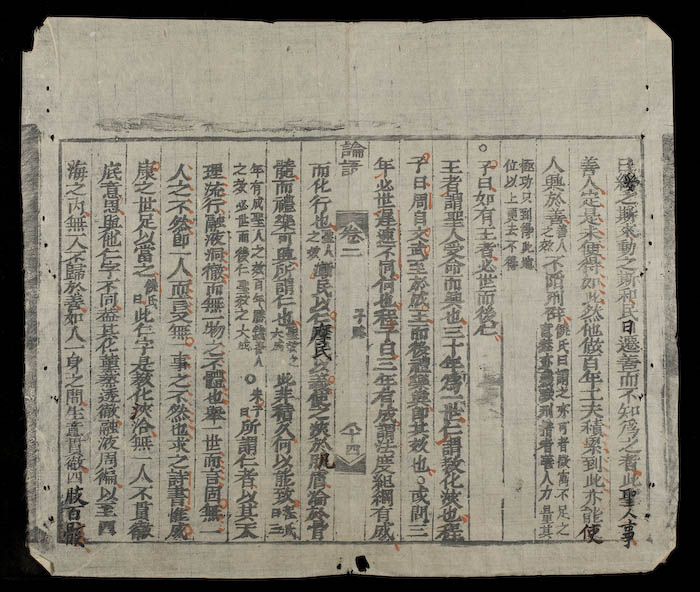 日綏之斯來動之斯和民日遷善而不知爲之者此聖人事
善人定是未便得如此然他做百年工夫積累到此亦能使
人興於善善人之效不陷刑辟饒氏曰謂之亦可者微寓不足之刑措者善人力量其
極功只到得此地位以上更去不得
○子曰如有王者必世而後仁
王者謂聖人受命而興也三十年爲一世仁謂敎化浹也程
子曰周自文武至於成王而後禮樂興卽其效也○或問三
年必世遲速不同何也程子曰三年有成謂法度紀綱有成
論語 卷二 子路 八十四
而化行也聖人之效漸民以仁摩民以義使之浹於肌膚淪於骨
髓而禮樂可興所謂仁也聖效之大成此非積久何以能致饒氏曰三
年有成聖人之效百年勝殘善人之效必世而後仁聖效之大成○朱子曰所謂仁者以其天
理流行融液洞徹而無一物之不體也擧一世而言固無一
人之不然卽一人而言又無一事之不然也求之詩書惟成
康之世足以當之饒氏曰此仁字是敎化浹洽無一人不貫徹
底意思與他仁字不同蓋其化薰蒸透徹融液周徧以至四
海之內無一人不歸於善如人一身之間生意貫徹四肢百骸